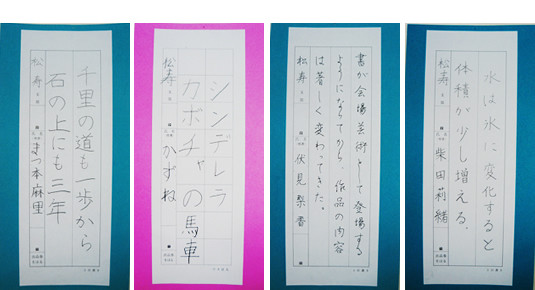 千里の道も一歩から
石の上にも三年
松寿 まつ本麻里
シンデレラ
カボチャの馬車
松寿 かずね
書が会場芸術として登場する
ようになってから、作品の内容
は著しく変わってきた。
松寿 伏見梨香
水は氷に変化すると
体積が少し増える。
松寿 柴田莉緒